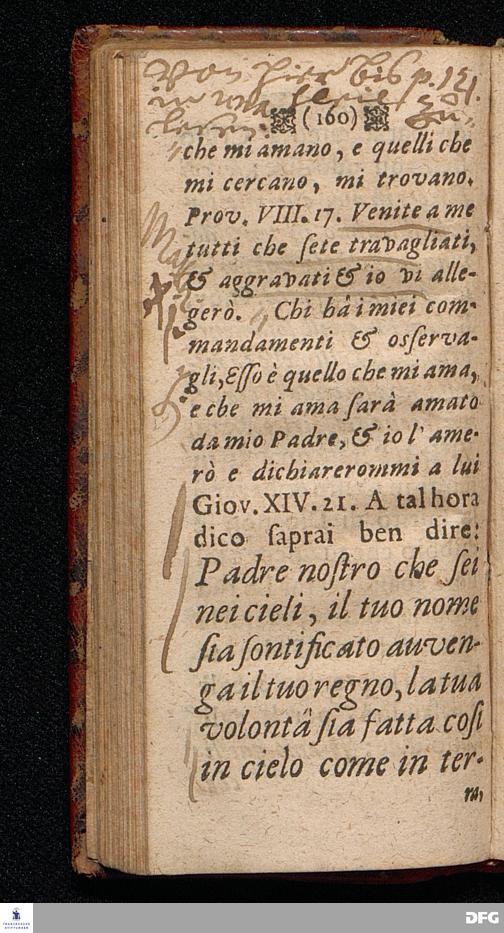 Von hier bis p. 151.
in
lesen.
(160)
che mi amano, e quelli che
mi cercano, mi trovano.
Prov. VIII. 17. Venite a me
tutti che ſete travagliati,
& aggravati & io vi alle-
gerò. Chi hâ i miei com-
mandamenti & osſerva-
gli, Eſſo è quello che mi ama,
e che mi ama ſarà amato
da mio Padre, & io l' ame-
rò e dichiarerommi a lui
Giov. XIV. 21. A tal hora
dico ſaprai ben dire:
Padre noſtro che ſei
nei cieli, il tuo nome
ſia ſontificato auven-
ga il tuo regno, la tua
volontâ ſia fatta coſi
in cielo come in ter-
ra,
FRANCKESCHE
STIFTUNGEN
DFG